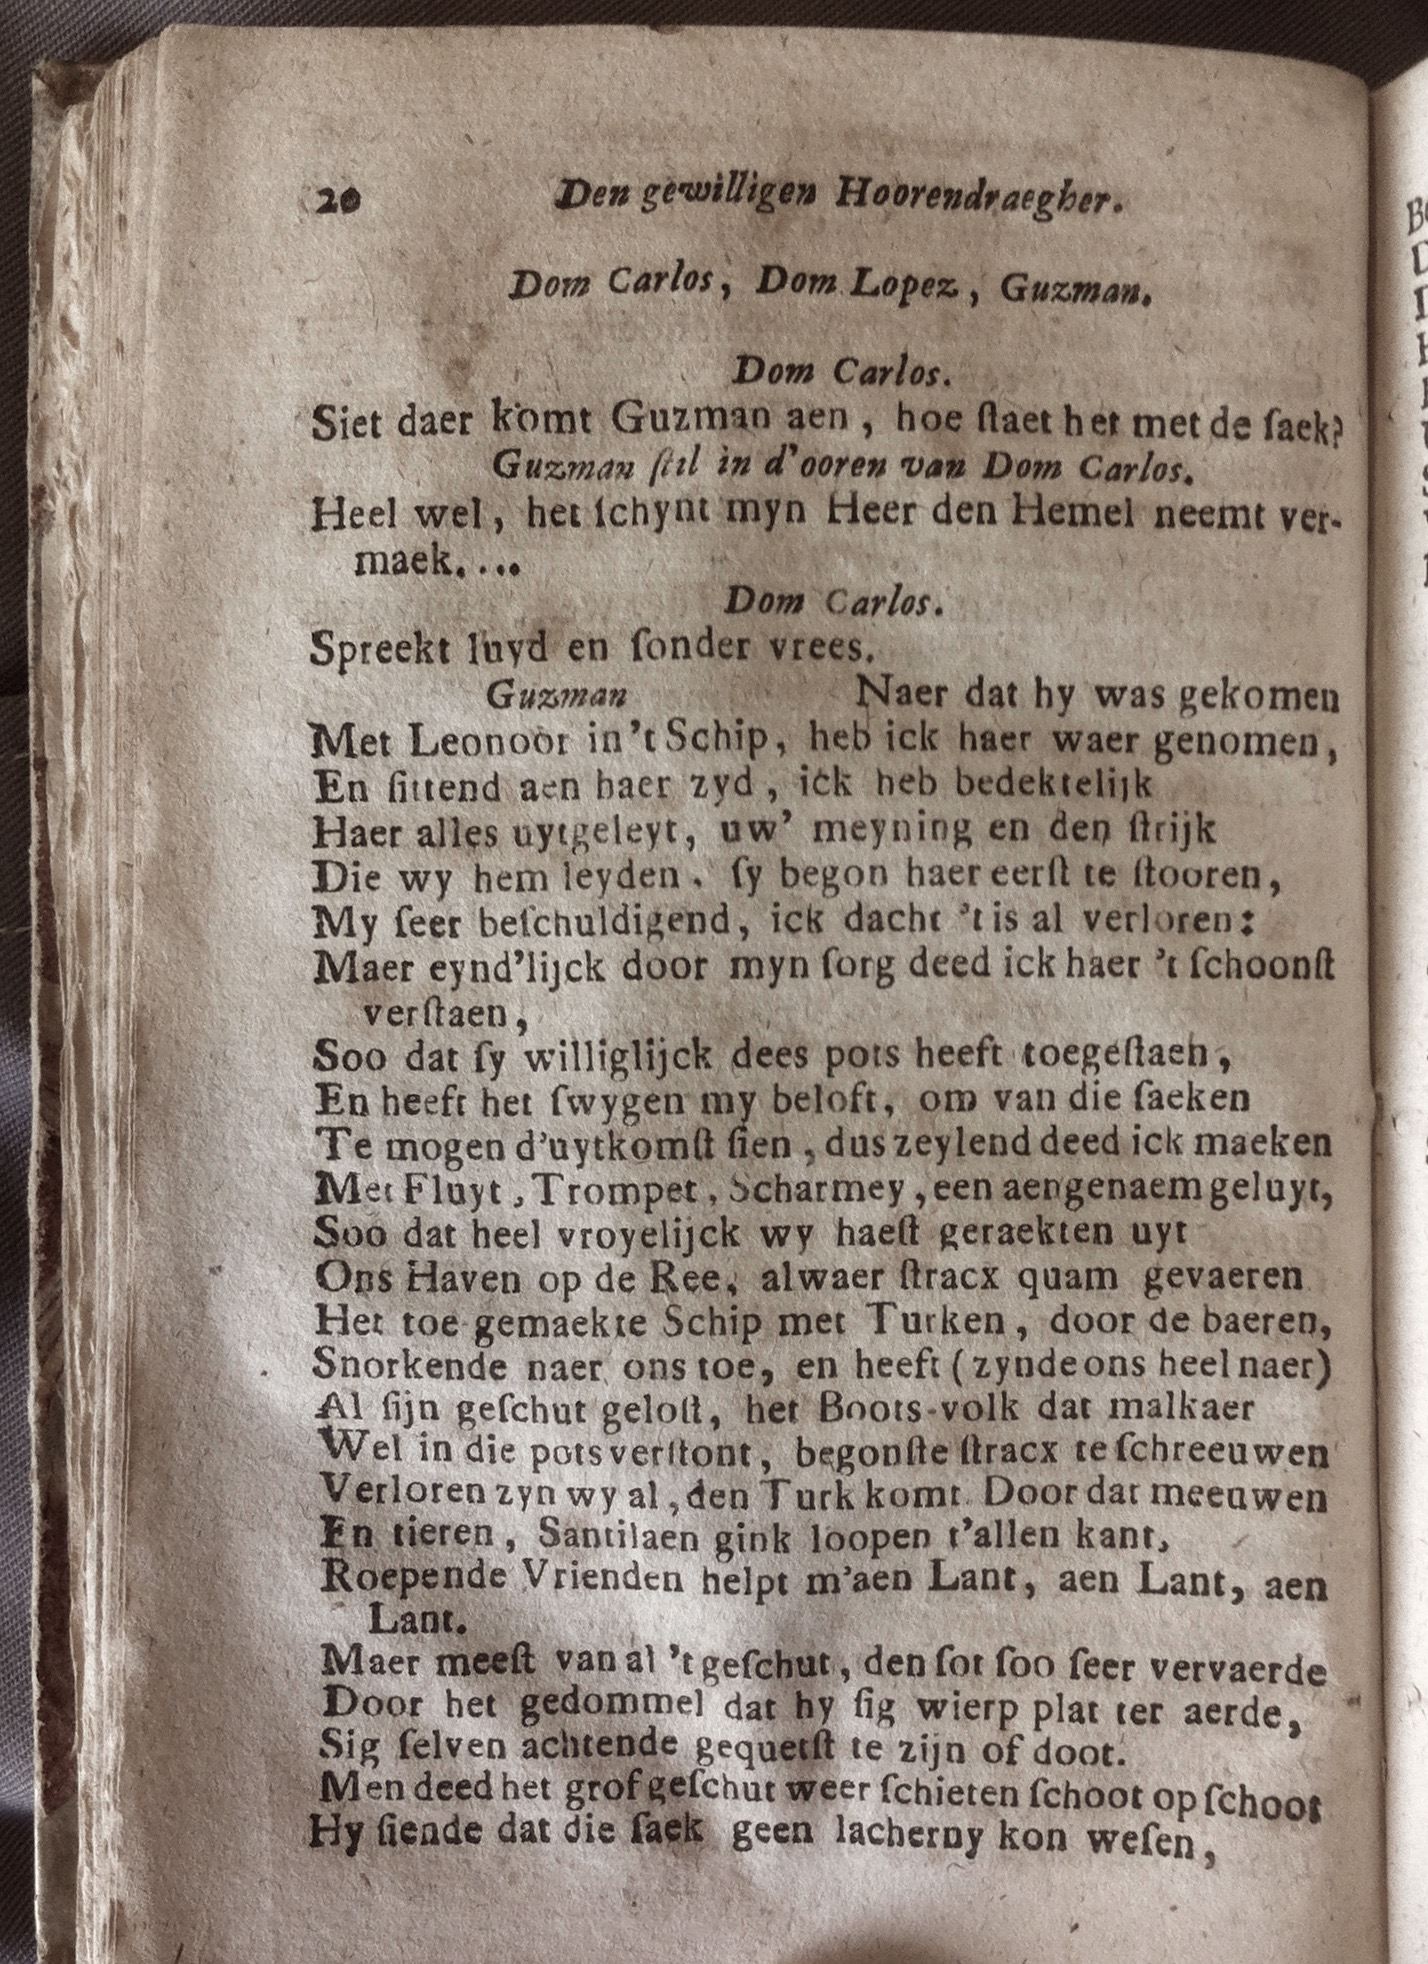 20 Den gewilligen Hoorendraegher.
Dom Carlos, Dom Lopez, Guzman.
Dom Carlos.
Siet daer komt Guzman aen, hoe ſtaet het met de ſaek?
Guzman ſtil in d'ooren van Dom Carlos.
Heel wel, het ſchynt myn Heer den Hemel neemt ver-
maek....
Dom Carlos.
Spreekt luyd en ſonder vrees.
Guzman Naer dat hy was gekomen
Met Leonoor in 't Schip, heb ick haer waer genomen,
En ſittend aen haer zyd, ick heb bedektelijk
Haer alles uytgeleyt, uw' meyning en den ſtrijk
Die wy hem leyden. ſy begon haer eerſt te ſtooren,
My ſeer beſchuldigend, ick dacht 't is al verloren:
Maer eynd'lijck door myn ſorg deed ick haer 't ſchoonſt
verſtaen,
Soo dat ſy williglijck dees pots heeft toegeſtaen,
En heeft het ſwygen my beloft, om van die ſaeken
Te mogen d'uytkomſt ſien, dus zeylend deed ick maeken
Met Fluyt, Trompet, Scharmey, een aengenaem geluyt,
Soo dat heel vroyelijck wy haeſt geraekten uyt
Ons Haven op de Ree, alwaer ſtracx quam gevaeren
Het toe gemaekte Schip met Turken, door de baeren,
Snorkende naer ons toe, en heeft (zynde ons heel naer)
Al ſijn geſchut geloſt, het Boots-volk dat malkaer
Wel in die pots verſtont, begonſte ſtracx te ſchreeuwen
Verloren zyn wy al, den Turk komt. Door dat meeuwen
En tieren, Santilaen gink loopen t'allen kant,
Roepende Vrienden helpt m'aen Lant, aen Lant, aen
Lant.
Maer meeſt van al 't geſchut, den ſot ſoo ſeer vervaerde
Door het gedommel dat hy ſig wierp plat ter aerde,
Sig ſelven achtende gequetſt te zijn of doot.
Men deed het grof geſchut weer ſchieten ſchoot op ſchoot
Hy ſiende dat die ſaek geen lacherny kon weſen,